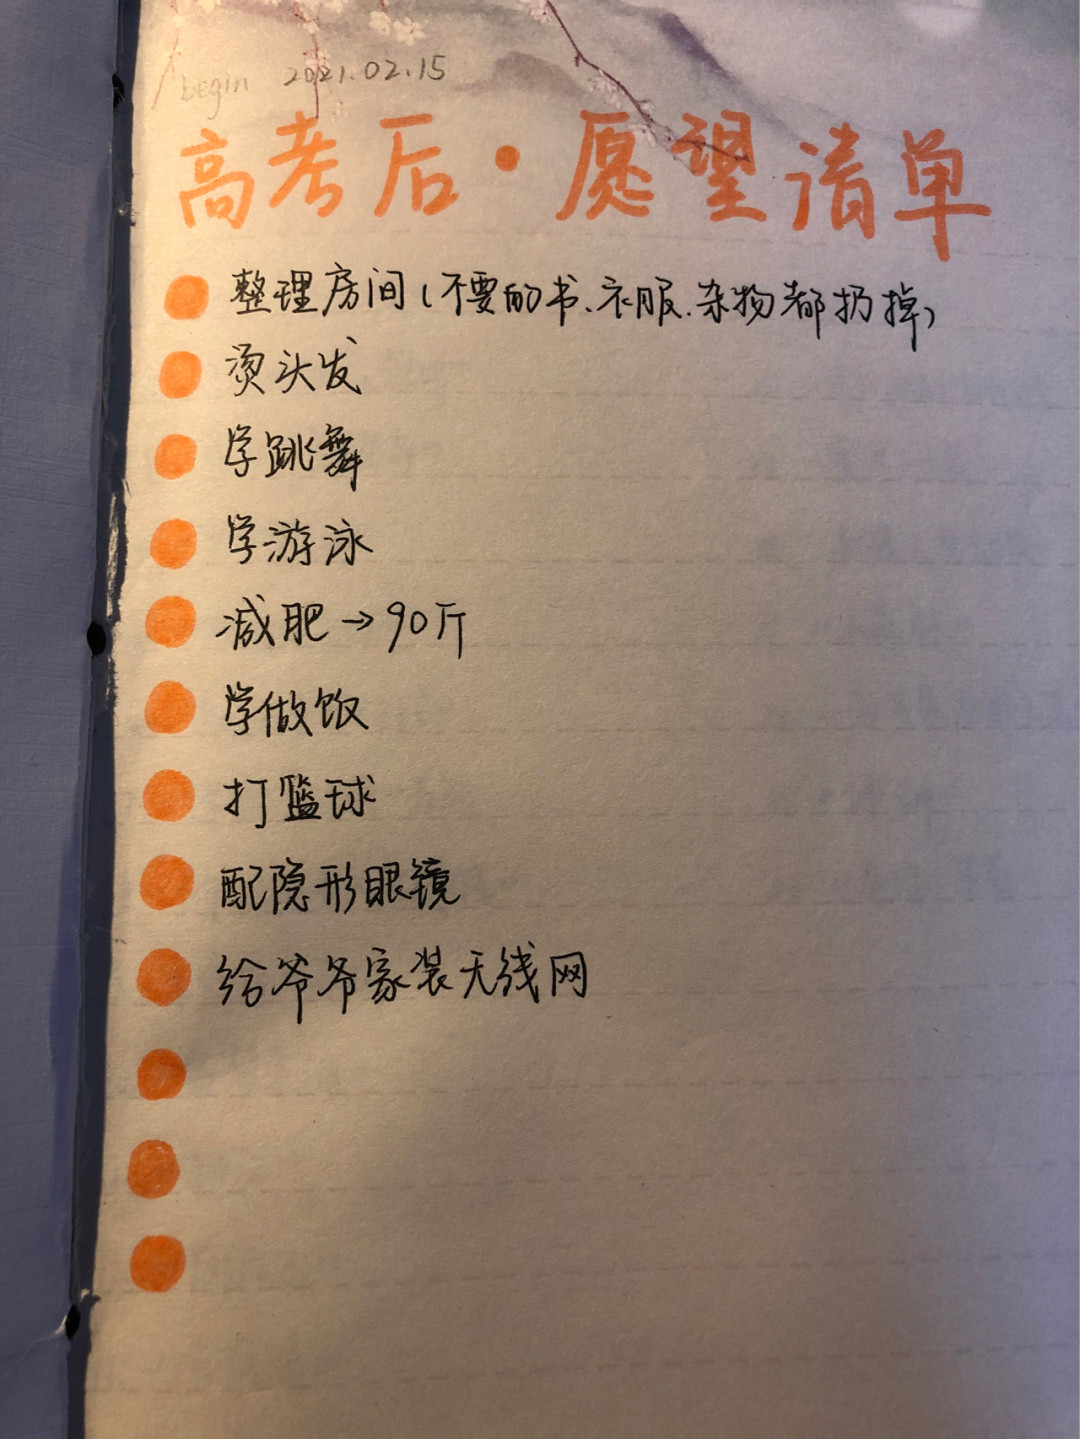 begin 2021.02.15
高考后·愿望清单
整理房间(不要的书、衣服、杂物都扔掉)
烫头发
学跳舞
学游泳
减肥→90斤
学做饭
打篮球
配隐形眼镜
给爷爷家装无线网